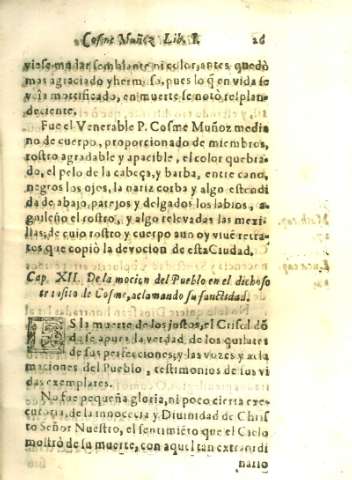 Cosme Muñez Lib. I. 26
viese mudar semblante ni color, antes quedò
mas agraciado y hermoso, pues lo q̃ en vida se
veìa mortificado, en muerte se notò resplan-
deciente.
Fue el Venerable P. Cosme Muñoz media
no de cuerpo, proporcionado de miembros,
rostro agradable y apacible, el color quebra-
do, el pelo de la cabeça, y barba, entre cano,
negros los ojos, la nariz corba y algo estendi
da de abajo, parejos y delgados los labios, a-
guileño el rostro, y algo relevadas las mexi-
llas; de cuio rostro y cuerpo aun oy viuẽ retra-
tos que copiò la devocion de esta Ciudad.
Cap. XII. De la mocion del Pueblo en el dichoso
transito de Cosme, aclamando su sanctidad.
ES la muerte de los justos, el Crisol dõ
de se apura la verdad, de los quilates
de sus perfecciones, y las vozes y acla
maciones del Pueblo, testimonios de sus vi
das exemplares.
No fue pequeña gloria, ni poco cierta exe-
cutoria, de la innocecia y Divinidad de Chris
to Señor Nuestro, el sentimiẽto que el Cielo
mostrò de su muerte, con aquel tan extraordi
nario